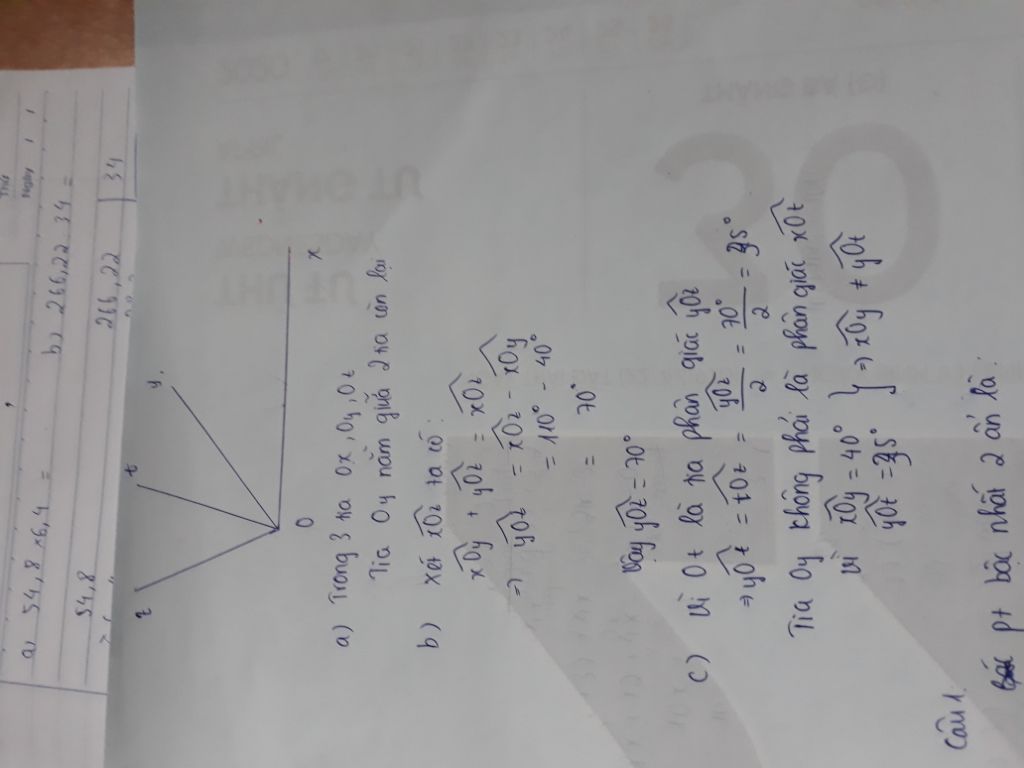 a) 54,8 x 6,4 =
b) 266,22 34 =
54,8
266,22 34
Ngày
z
t
y
O
x
a) Trong 3 tia Ox, Oy, Ot
Tia Oy nằm giữa 2 tia còn lại
b) Xét xOz ta có:
xOy + yOz = xOz
=> yOz = xOz - xOy
= 110° - 40°
= 70°
Vậy yOz = 70°
c) Vì Ot là tia phân giác yOz
=> yOt = tOz = yOz/2 = 70°/2 = 35°
Tia Oy không phải là phân giác xOt
Vì xOy = 40°
yOt = 35° } => xOy ≠ yOt
Câu 1:
pt bậc nhất 2 ẩn là:
2020
THÁNG BA (3)
30
APRIL
THÁNG TƯ
WEDNESDAY
THỨ TƯ